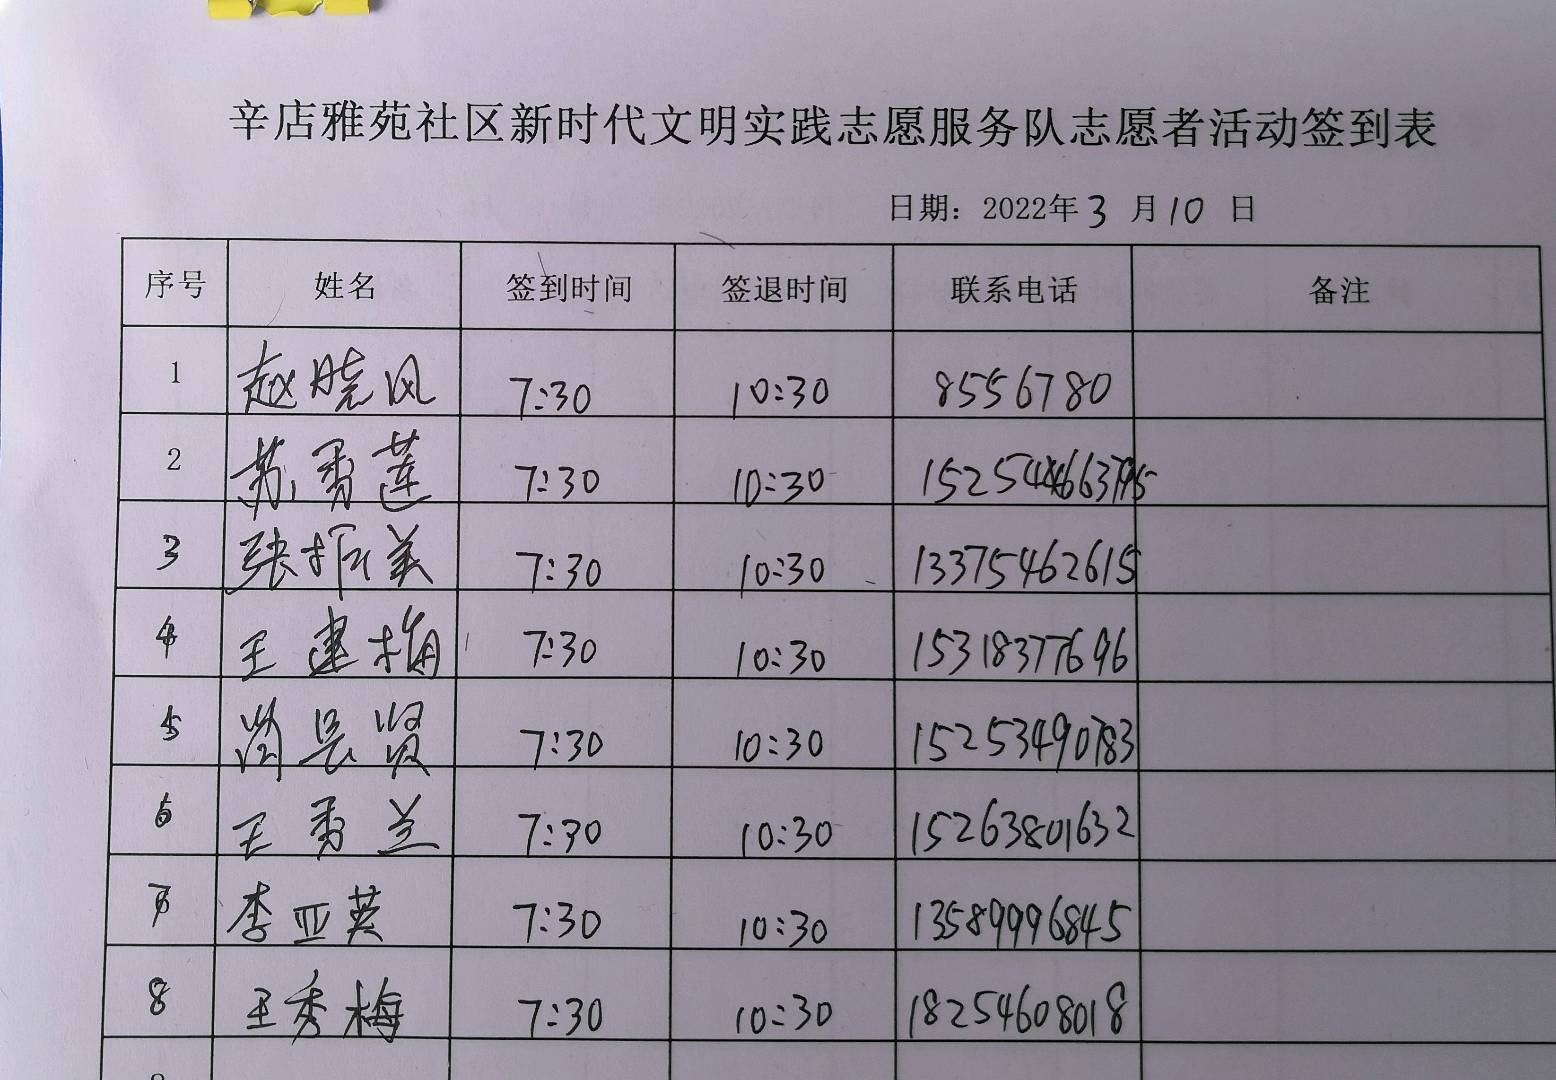 辛店雅苑社区新时代文明实践志愿服务队志愿者活动签到表
日期：2022年3月10日
序号 姓名 签到时间 签退时间 联系电话 备注
1 赵晓风 7:30 10:30 8556780
2 苏秀莲 7:30 10:30
3 张振美 7:30 10:30 13375462615
4 王建梅 7:30 10:30 15318377696
5 7:30 10:30 15253490783
6 王秀兰 7:30 10:30 15263801632
7 李亚英 7:30 10:30 13589996845
8 王秀梅 7:30 10:30 18254608018